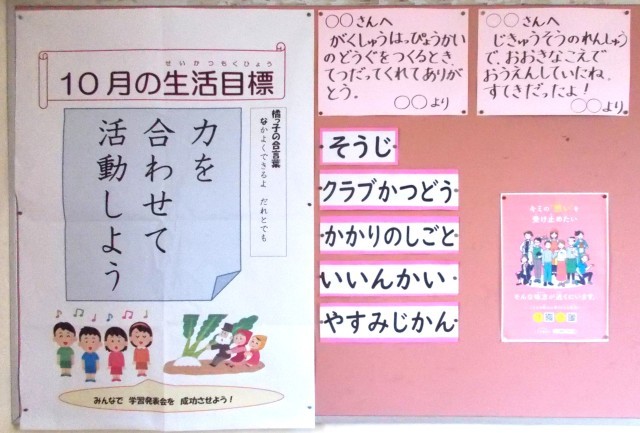 せいかつもくひょう
10月の生活目標
力を
合わせて
活動しよう
橘っ子の合言葉
なかよくできるよ だれとでも
みんなで 学習発表会を 成功させよう！
○○さんへ
がくしゅうはっぴょうかい
のどうぐをつくるとき、
てつだってくれてありが
とう。
○○より
○○さんへ
じきゅうそうのれんしゅう
で、おおきなこえで
おうえんしていたね。
すてきだったよ！
○○より
そうじ
クラブかつどう
かかりのしごと
いいんかい
やすみじかん
キミの"想い"を
受け止めたい